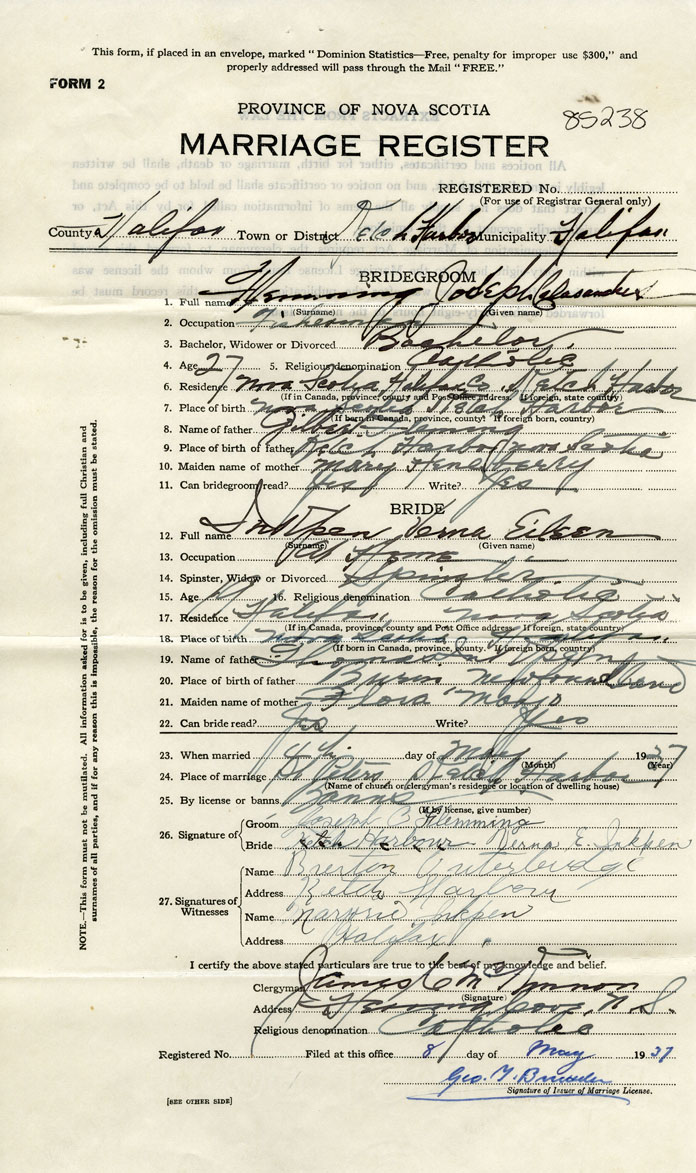 This form, if placed in an envelope, marked " Dominion Statistics—Free, penalty for improper use $300," and
properly addressed will pass through the Mail " FREE."
FORM 2
PROVINCE OF NOVA SCOTIA
85238
MARRIAGE REGISTER
REGISTERED No.
(For use of Registrar General only)
County Halifax Town or District Ketch Harbor Municipality Halifax
BRIDEGROOM
1. Full name Flemming Joseph
(Surname) (Given name)
2. Occupation Fisherman
3. Bachelor, Widower or Divorced Bachelor
4. Age 27 5. Religious denomination Catholic
6. Residence Nova Scotia Halifax Co. Ketch Harbor
(If in Canada, province, county and Post Office address. If foreign, state country)
7. Place of birth Nova Scotia Ketch Harbor
(If born in Canada, province, county. If foreign born, country)
8. Name of father Gilbert Flemming
9. Place of birth of father Ketch Harbor Nova Scotia
10. Maiden name of mother Mary
11. Can bridegroom read? Yes Write? Yes
BRIDE
12. Full name Inkpen Verna Eileen
(Surname) (Given name)
13. Occupation At Home
14. Spinster, Widow or Divorced Spinster
15. Age 16. Religious denomination Catholic
17. Residence Halifax Nova Scotia
(If in Canada, province, county and Post Office address. If foreign, state country)
18. Place of birth Nova Scotia
(If born in Canada, province, county. If foreign born, country)
19. Name of father Thomas Inkpen
20. Place of birth of father Burin Newfoundland
21. Maiden name of mother Flora Mayo
22. Can bride read? Yes Write? Yes
23. When married 4th day of May 1937
(Month) (Year)
24. Place of marriage St Peters Ketch Harbor
(Name of church or clergyman's residence or location of dwelling house)
25. By license or banns Banns
(If by license, give number)
26. Signature of
Groom Joseph C Flemming
Bride Ketch Harbour Verna E. Inkpen
27. Signatures of Witnesses
Name Burton Outerbridge
Address Ketch Harbour
Name Marjorie Inkpen
Address Halifax
I certify the above stated particulars are true to the best of my knowledge and belief.
Clergyman James C
(Signature)
Address Herring Cove, N.S.
Religious denomination Catholic
Registered No. Filed at this office 8 day of May 1937
Geo. T.
Signature of Issuer of Marriage License.
[SEE OTHER SIDE]
NOTE.—This form must not be mutilated. All information asked for is to be given, including full Christian and
surnames of all parties, and if for any reason this is impossible, the reason for the omission must be stated.